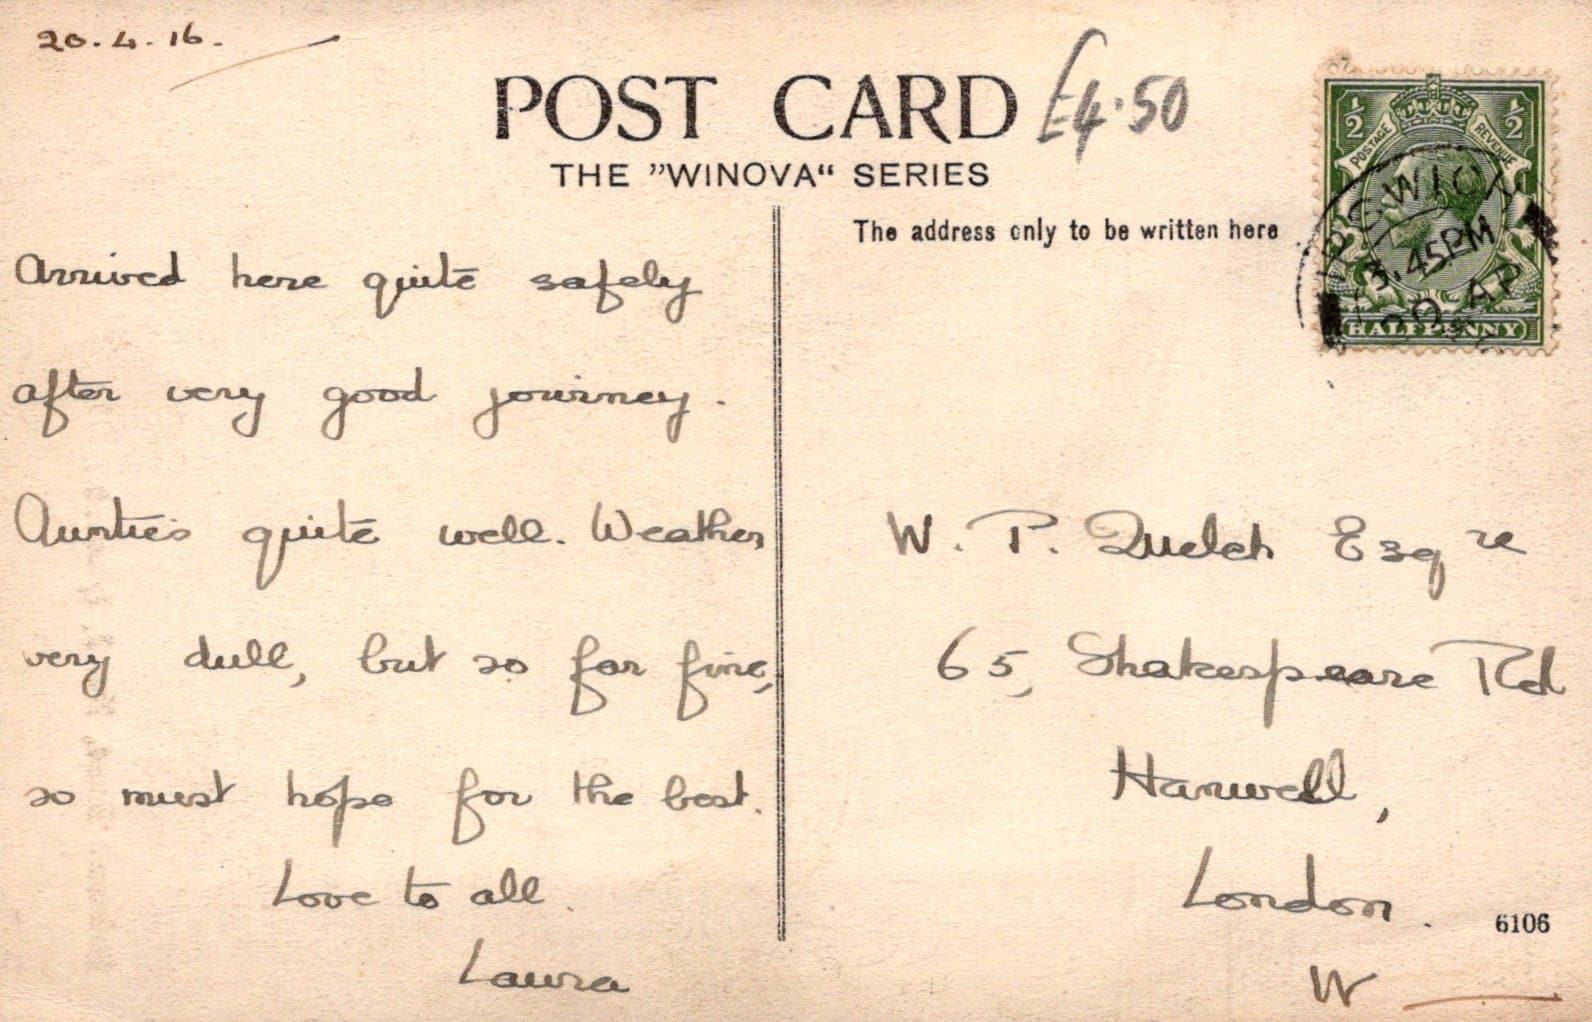 20.4.16.
POST CARD
£4.50
THE "WINOVA" SERIES
The address only to be written here
½ ½
POSTAGE REVENUE
IPSWICH
3.45PM
20 AP
HALFPENNY
Arrived here quite safely
after very good journey.
Auntie's quite well. Weather
very dull, but so far fine,
so must hope for the best.
Love to all.
Laura
W. P. Quelch Esqre
65, Shakespeare Rd
Hanwell,
London.
W
6106